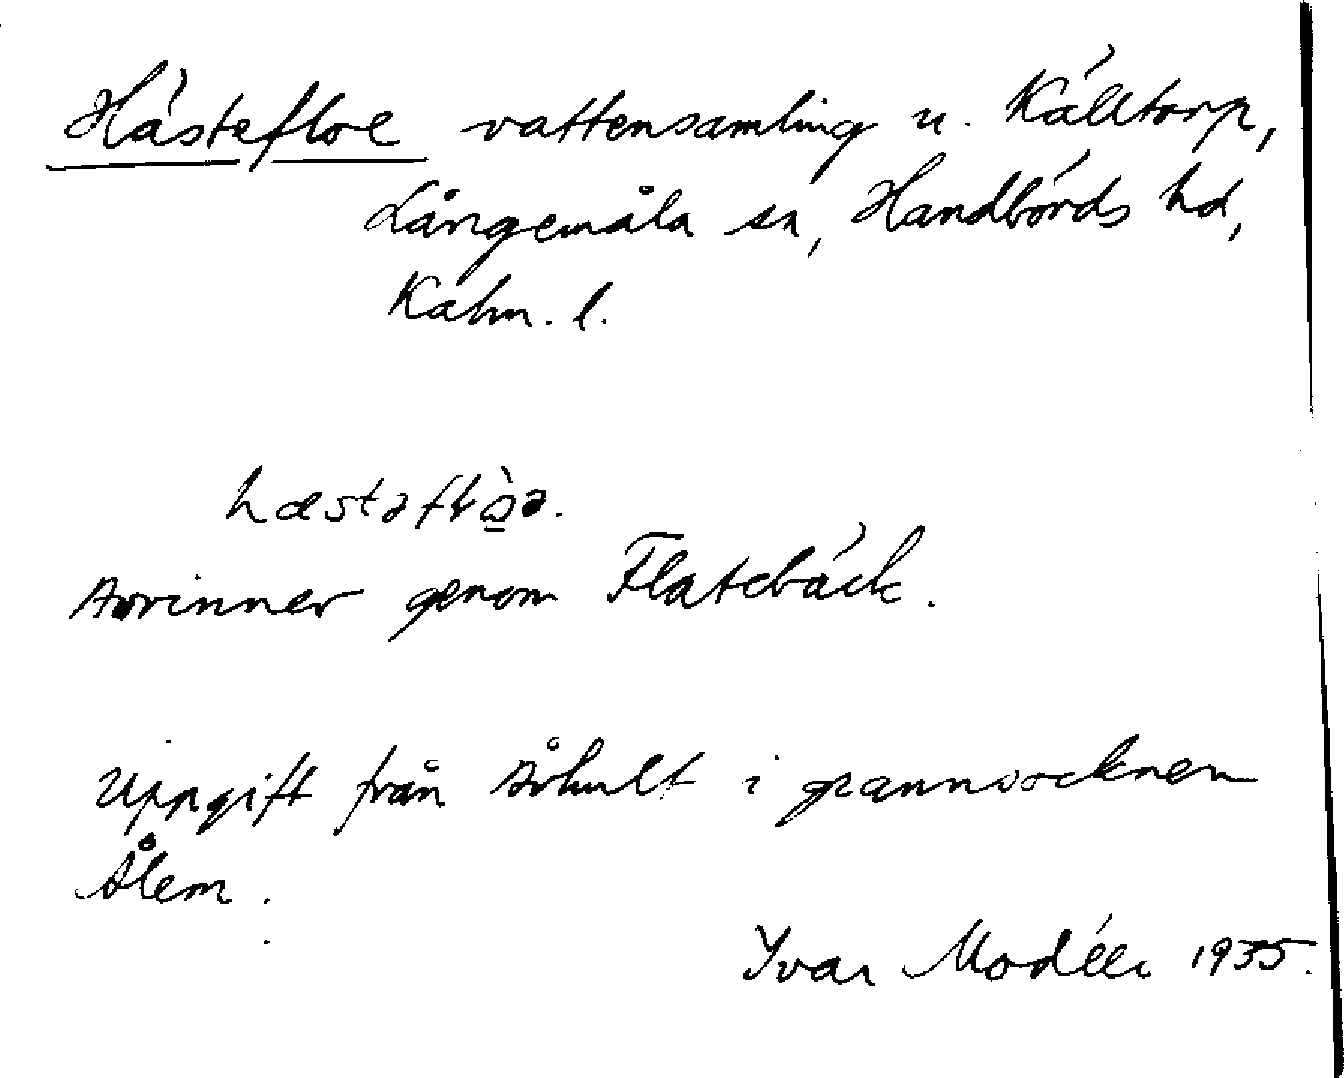 Hästefloe vattensamling u. Källtorp,
Långemåla sn, Handbörds hd,
Kalm. l.
hæstəflò̠ə.
Avrinner genom Flatebäck.
Uppgift från Århult i grannsocknen
Ålem.
Yvar Modéer 1935.